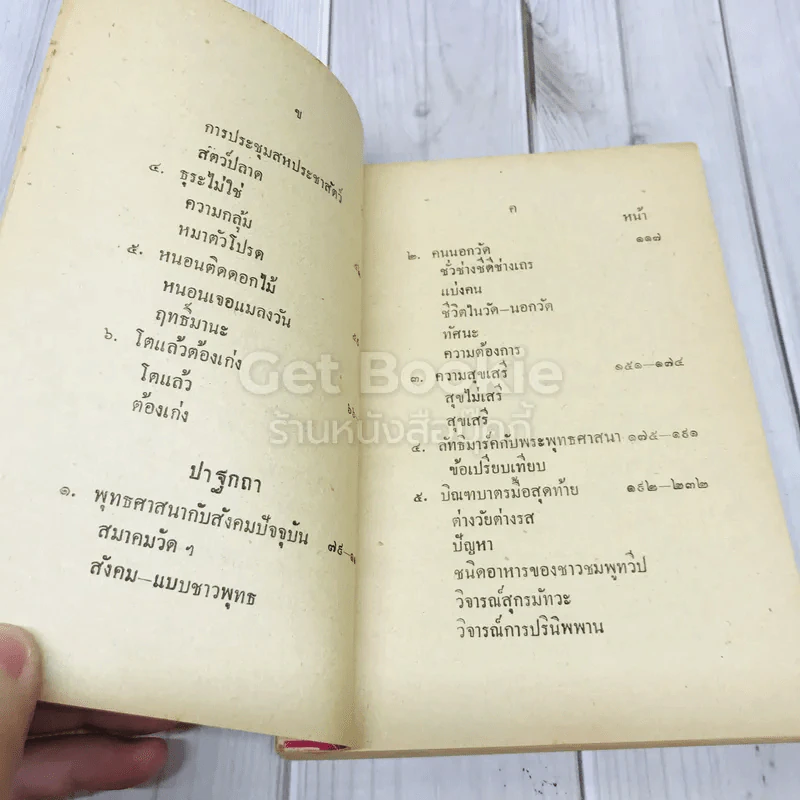 ข
การประชุมสหประชาสัตว์
สัตว์ปลาด
๔. ธุระไม่ใช่
ความกลุ้ม
หมาตัวโปรด
๕. หนอนติดดอกไม้
หนอนเจอแมลงวัน
ฤทธิ์มานะ
๖. โตแล้วต้องเก่ง
โตแล้ว
ต้องเก่ง
ปาฐกถา
๑. พุทธศาสนากับสังคมปัจจุบัน ๗๙–
สมาคมวัด ๆ
สังคม—แบบชาวพุทธ
ค
หน้า
๒. คนนอกวัด ๑๑๗
ชั่วช่างชีดีช่างเถร
แบ่งคน
ชีวิตในวัด–นอกวัด
ทัศนะ
ความต้องการ
๓. ความสุขเสรี ๑๕๑–๑๗๔
สุขไม่เสรี
สุขเสรี
๔. ลัทธิมาร์คกับพระพุทธศาสนา ๑๗๕–๑๙๑
ข้อเปรียบเทียบ
๕. บิณฑบาตรมื้อสุดท้าย ๑๙๒–๒๓๒
ต่างวัยต่างรส
ปัญหา
ชนิดอาหารของชาวชมพูทวีป
วิจารณ์สุกรมัทวะ
วิจารณ์การปรินิพพาน
Get Bookie
ร้านหนังสือบุ๊คกี้